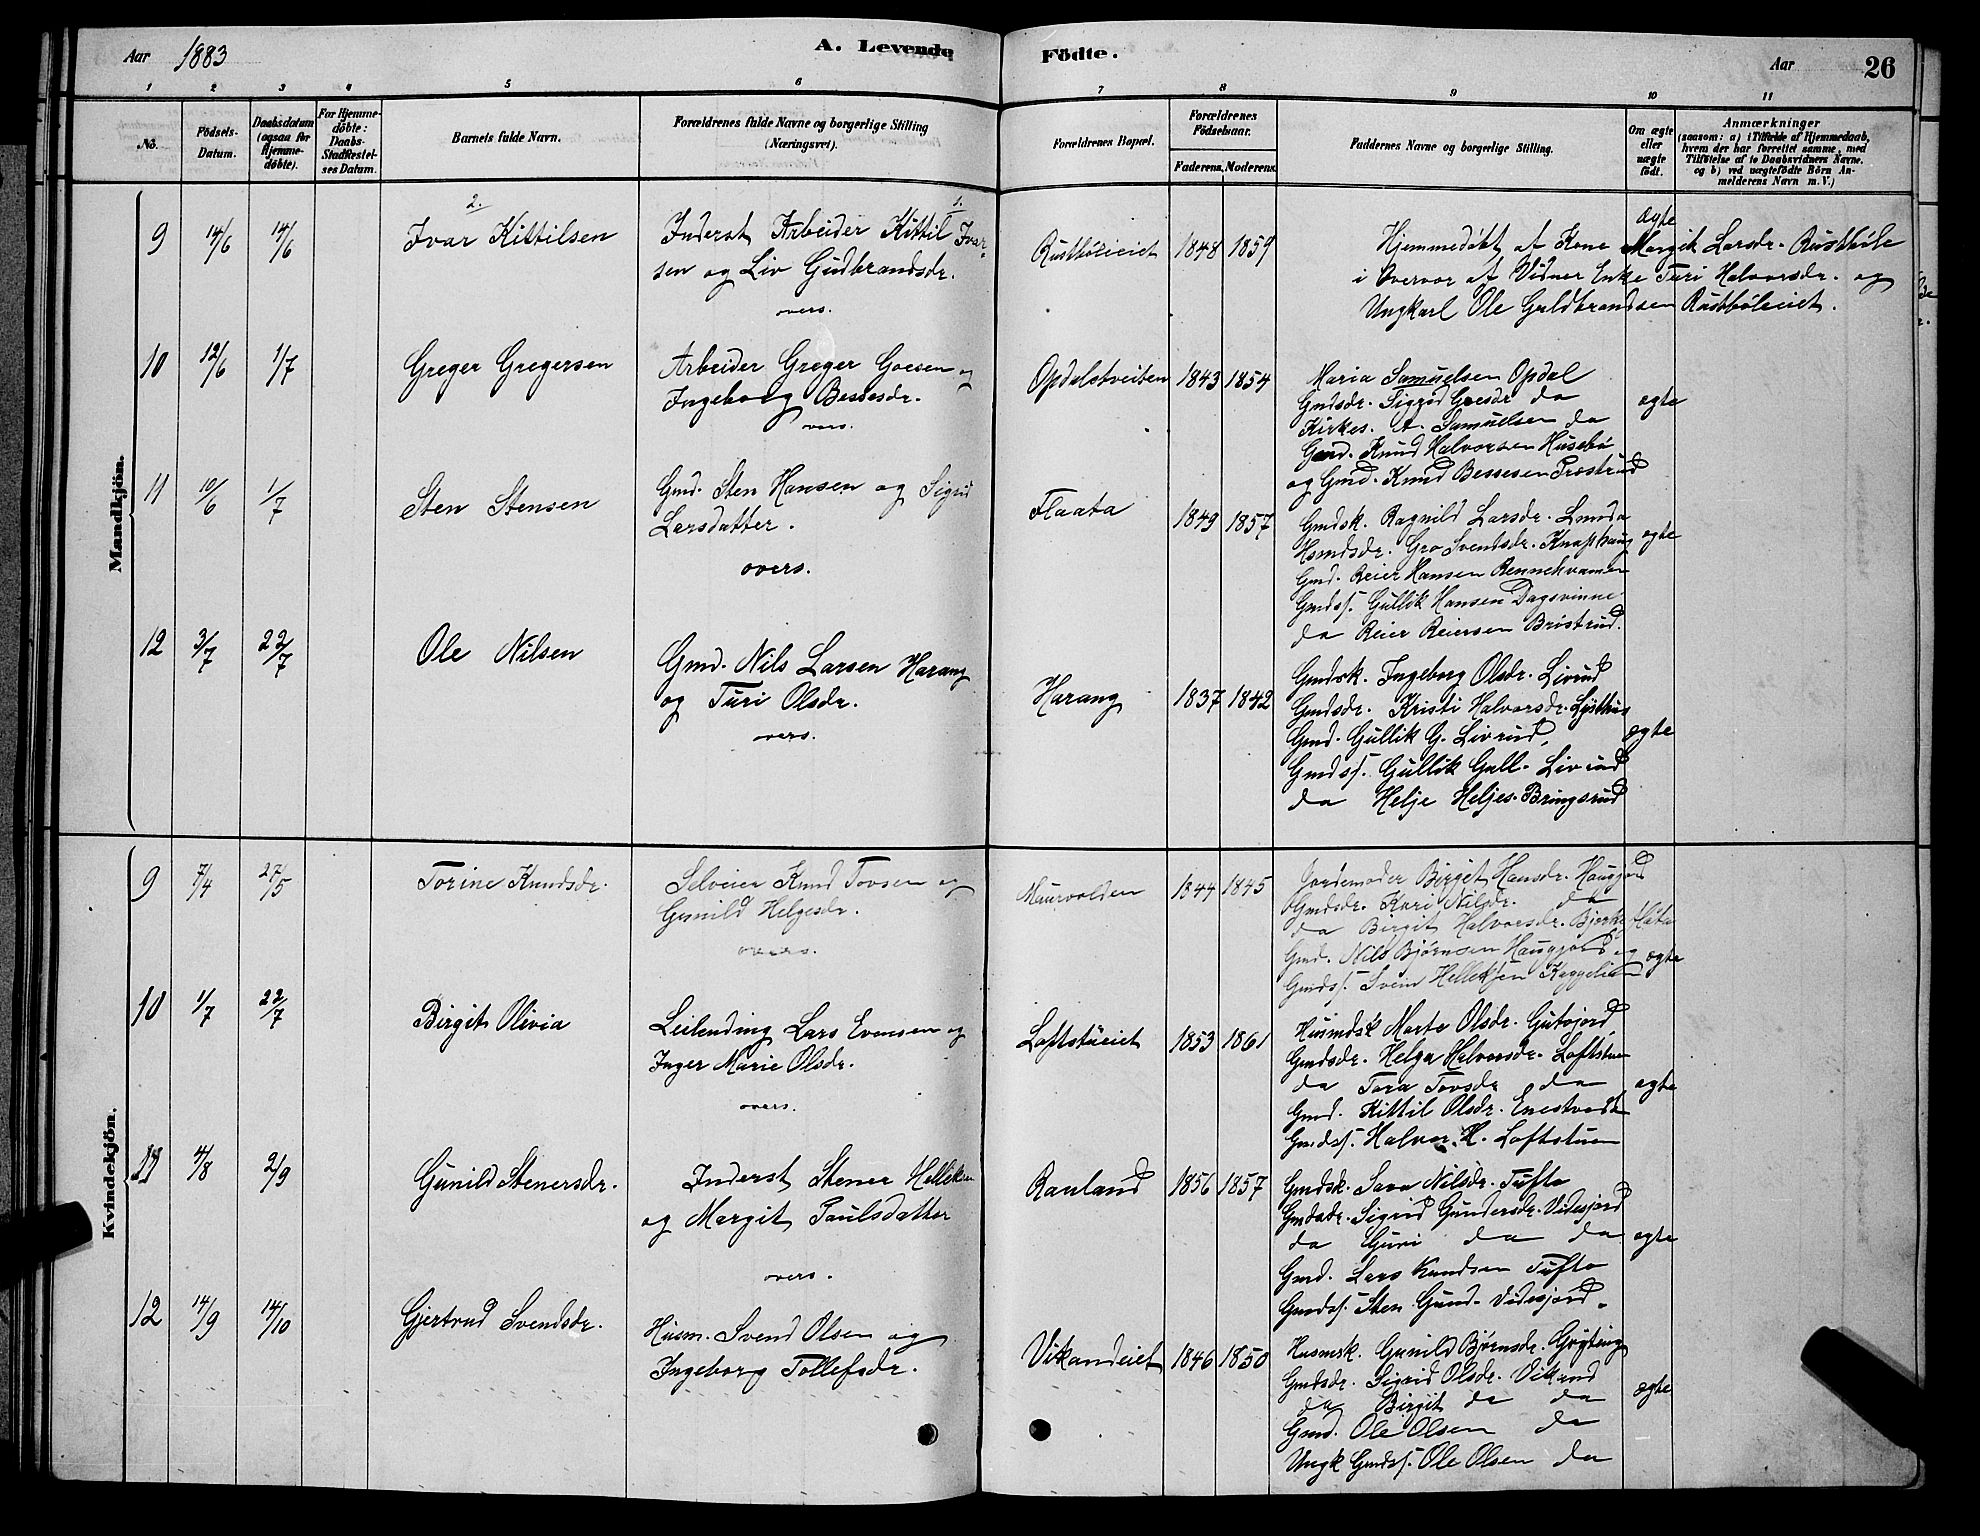 Aar 1883 A. Levende Födte. Aar 26
1 2 3 4 5 6 7 8 9 10 11
No. Födsels-Datum. Daabsdatum (ogsaa for Hjemme-döbte). For Hjemme-döbte: Daabs-Stadfæstel-ses Datum. Barnets fulde Navn. Forældrenes fulde Navne og borgerlige Stilling (Næringsvei). Forældrenes Bopæl. Forældrenes Födselsaar. Faderens. Moderens. Faddernes Navne og borgerlige Stilling. Om ægte eller uægte födt. Anmærkninger (saasom: a) i Tilfælde af Hjemmedaab, hvem der har forrettet samme, med Tilföielse af to Daabsvidners Navne. og b) ved uægtefödte Börn An-melderens Navn m. V.)
Mandkjön.
9 14/6 14/6 2. Ivar Kittilsen Inderst Arbeider Kittil 1. Ivar-
sen og Liv Gudbrandsdr.
overs.
Rustböleiet 1848 1859 ægte
Hjemmedöbt af Kone Margit Larsdr. Rustböle
i Overvær af Vidner Enke Turi Halvorsdr. og
Ungkarl Ole Guldbrandsen Rustböleiet.
10 12/6 1/7 Greger Gregersen Arbeider Greger Goesen og
Ingeborg Bessesdr.
overs.
Opdalstveiten 1843 1854 ægte
Maria Samuelsen Opdal
Gmdsdr. Sigrid Goesdr. da
Kirkes. A. Samuelsen da
Gmd. Knud Halvorsen Husebö
og Gmd. Knud Bessesen Præstrud
11 10/6 1/7 Sten Stensen Gmd. Sten Hansen og Sigrid
Larsdatter.
overs.
Flaata 1849 1857 ægte
Gmdsk. Ragnild Larsdr.
Hsmdsdr. Gro Svendsdr. Knaphaug
Gmd. Reier Hansen Bennehvamen
Gmdss. Gullik Hansen Dagsvinne
da Reier Reiersen Bristrud.
12 3/7 22/7 Ole Nilsen Gmd. Nils Larsen Harang
og Turi Olsdr.
overs.
Harang 1837 1842 ægte
Gmdsk. Ingeborg Olsdr. Livrud
Gmdsdr. Kristi Halvorsdr. Lysthus
Gmd. Gullik G. Livrud,
Gmdss. Gullik Gull. Livrud
da Helje Heljes. Bringsrud
Kvindekjön.
9 7/4 27/5 Torine Knudsdr. Selveier Knud Tovsen og
Gunild Helgesdr.
overs.
Maurvolden 1844 1845 ægte
Jordemoder Birgit Hansdr. Haugjord
Gmdsdr. Kari Nilsdr. da
da Birgit Halvorsdr. Bjerkeflata
Gmd. Nils Björnsen Haugjord og
Gmdss. Svein Helleksen Kaggelien
10 1/7 22/7 Birgit Olivia Leilending Lars Evensen og
Inger Marie Olsdr.
overs.
Loftstueiet 1853 1861 ægte
Husmdsk Marte Olsdr. Gutujord
Gmdsdr. Helga Halvorsdr. Loftstuen
da Tora Tovsdr da
Gmd. Kittil Olsdr. Enestvedt
Gmdss. Halvor H. Loftstuen
11 4/8 2/9 Gunild Stenersdr. Inderst Stener Helliksen
og Margit Paulsdatter
overs.
Rauland 1856 1857 ægte
Gmdsk. Sava Nilsdr. Tufto
Gmdsdr. Sigrid Gundersdr. Videsjord
da Guri da da
Gmd. Lars Knudsen Tufto
Gmdss. Sten Gund. Videsjord.
12 14/9 14/10 Gjertrud Svendsdr. Husm. Svend Olsen og
Ingeborg Tollefsdr.
Vikandeiet 1846 1850 ægte
Husmsk. Gunild Björnsdr.
Gmdsdr. Sigrid Olsdr. Vikand
da Birgit da da
Gmd. Ole Olsen da
Ungk Gmdss. Ole Olsen da